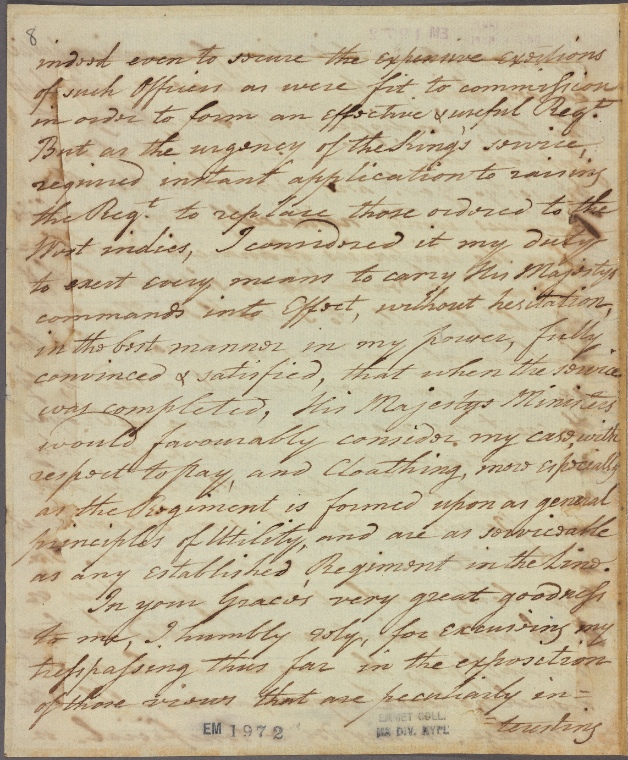 8
indeed even to secure the expensive exertions
of such Officers as were fit to commission
in order to form an effective & useful Regt.
But as the urgency of the King's service,
required instant application to raising
the Regt. to replace those ordered to the
West indies, I considered it my duty
to exert every means to carry His Majestys
commands into Effect, without hesitation,
in the best manner in my power, fully
convinced & satisfied, that when the service
was completed, His Majestys Ministers
would favourably consider my case with
respect to Pay, and Cloathing, more especially
as the Regiment is formed upon as general
principles of Utility, and are as serviceable
as any established Regiment in the Line.
In your Grace's very great goodness
to me, I humbly rely, for excusing my
trespassing thus far in the exposition
of those views that are peculiarly in=
=teresting
EM 1972
EMMET COLL.
MS DIV. NYPL